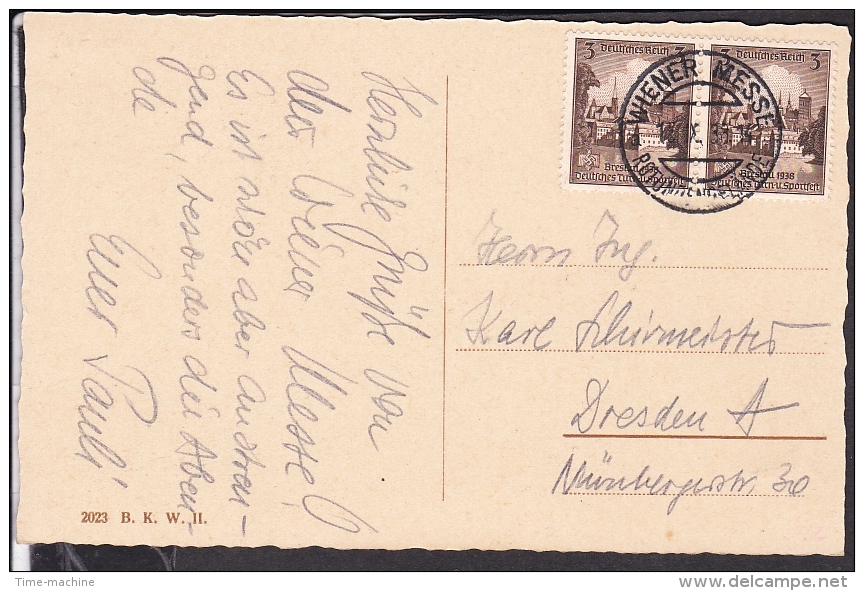 Herzliche Grüße von
der Wiener Messe!
Es ist schön aber anstren-
gend, besonders die Aben-
de
Euer Pauli
2023 B. K. W. II.
3 Deutsches Reich 3
Breslau 1938
Deutsches Turn-u. Sportfest
3 Deutsches Reich 3
Breslau 1938
Deutsches Turn-u. Sportfest
WIENER MESSE
Herrn Ing.
Karl Schirmeister
Dresden A
Nürnbergerstr. 30
Time-machine
delcampe.net